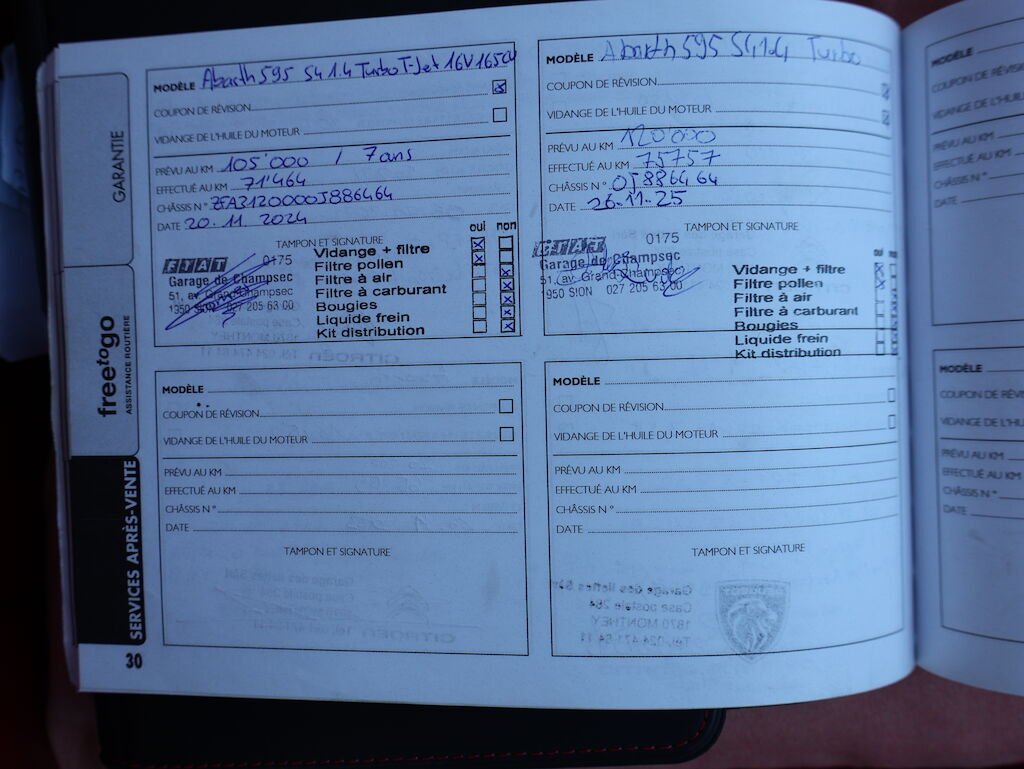 GARANTIE
freetogo
ASSISTANCE ROUTIÈRE
SERVICES APRÈS-VENTE
30
MODÈLE Abarth 595 S4 1.4 Turbo T-Jet 16V 165CV
COUPON DE RÉVISION
VIDANGE DE L'HUILE DU MOTEUR
PRÉVU AU KM 105'000 / 7 ans
EFFECTUÉ AU KM 71'464
CHÂSSIS N° ZFA3120000J886464
DATE 20.11.2024
TAMPON ET SIGNATURE
oui non
ETAT 0175
Garage de Champsec
51, av Grand-Champsec
1950 SION 027 205 63 00
Vidange + filtre
Filtre pollen
Filtre à air
Filtre à carburant
Bougies
Liquide frein
Kit distribution
MODÈLE Abarth 595 S4 1.4 Turbo
COUPON DE RÉVISION
VIDANGE DE L'HUILE DU MOTEUR
PRÉVU AU KM 120'000
EFFECTUÉ AU KM 75757
CHÂSSIS N° 0J886464
DATE 26.11.25
TAMPON ET SIGNATURE
oui
ETAT 0175
Garage de Champsec
51, av Grand-Champsec
1950 SION 027 205 63 00
Vidange + filtre
Filtre pollen
Filtre à air
Filtre à carburant
Bougies
Liquide frein
Kit distribution
MODÈLE
COUPON DE RÉVISION
VIDANGE DE L'HUILE DU MOTEUR
PRÉVU AU KM
EFFECTUÉ AU KM
CHÂSSIS N°
DATE
TAMPON ET SIGNATURE
MODÈLE
COUPON DE RÉVISION
VIDANGE DE L'HUILE DU MOTEUR
PRÉVU AU KM
EFFECTUÉ AU KM
CHÂSSIS N°
DATE
TAMPON ET SIGNATURE
MODÈLE
COUPON DE
VIDANGE DE
PRÉVU AU KM
EFFECTUÉ AU KM
CHÂSSIS N°
DATE
MODÈLE
COUPON DE
VIDANGE DE
PRÉVU AU KM
EFFECTUÉ AU KM
CHÂSSIS N°
DATE